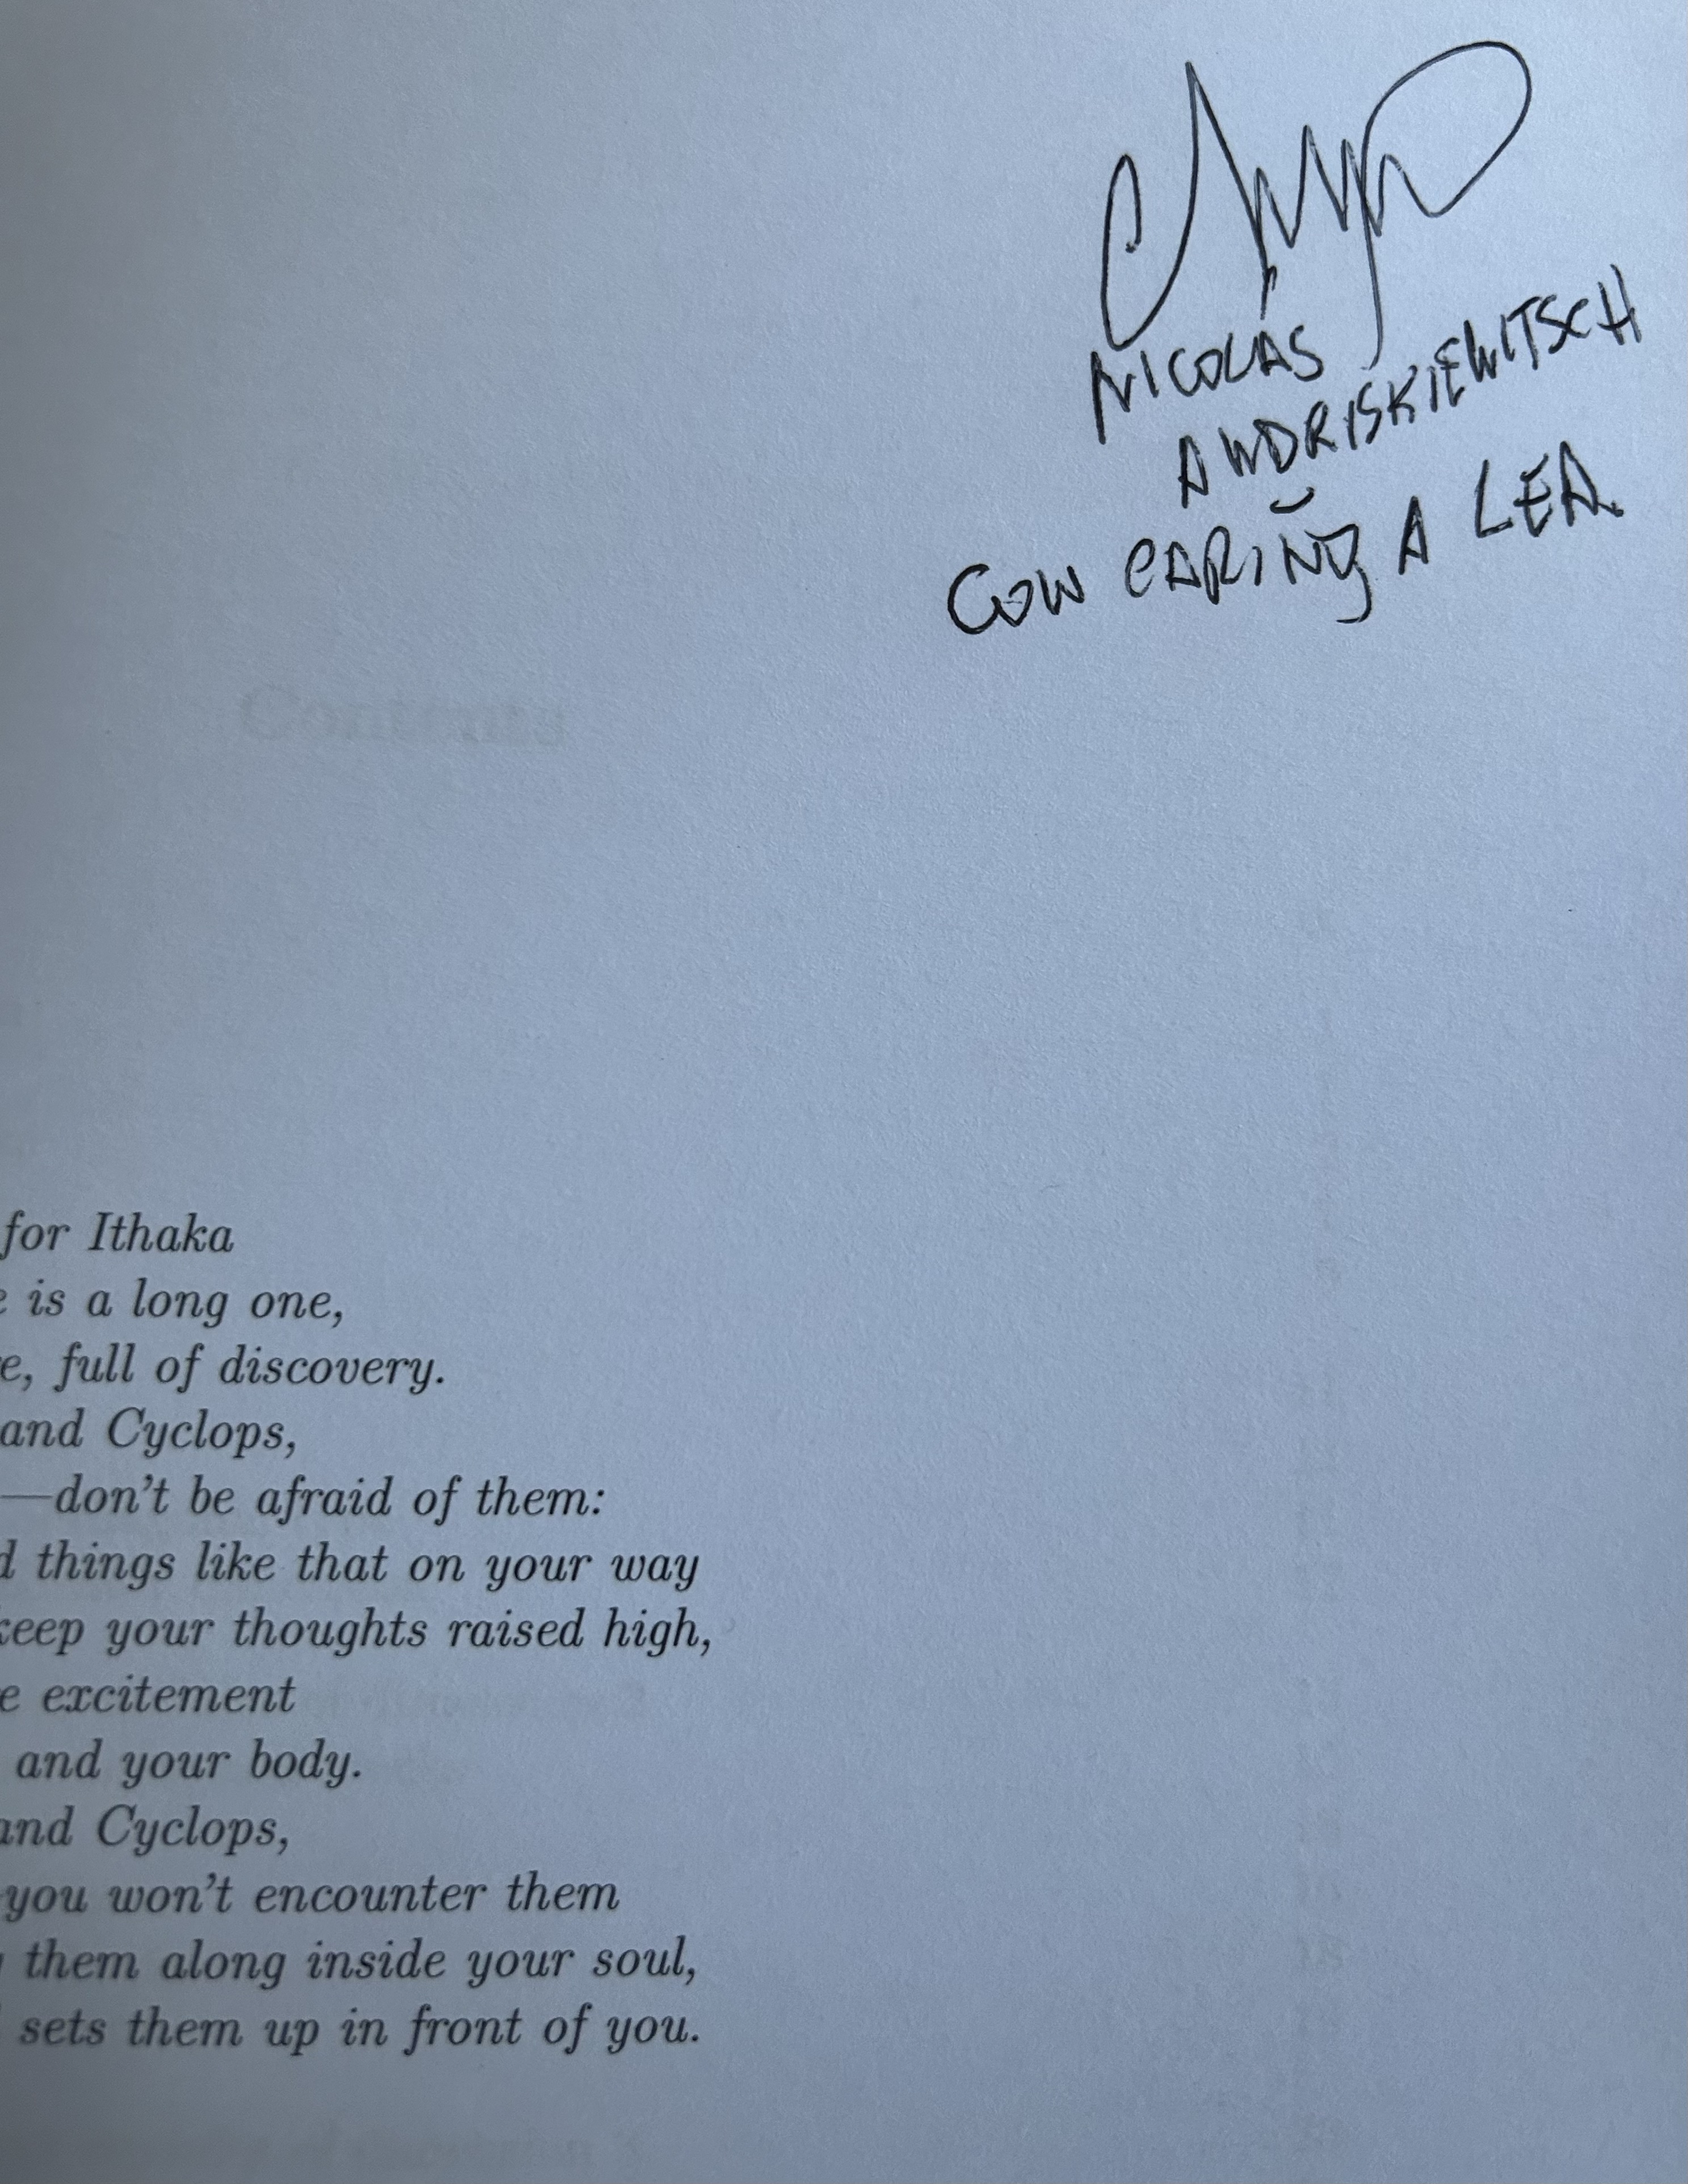 NICOLÁS
ANDRISKIEWITSCH
CON CARIÑO A LEA.
Contents
for Ithaka
is a long one,
full of discovery.
and Cyclops,
—don't be afraid of them:
things like that on your way
keep your thoughts raised high,
excitement
and your body.
and Cyclops,
you won't encounter them
them along inside your soul,
sets them up in front of you.
18